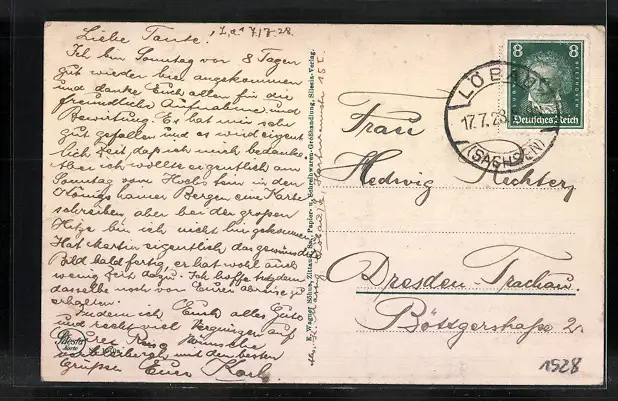 Liebe Tante.
17/7.28.
Ich bin Sonntag vor 8 Tagen
gut wieder hier angekommen
und danke Euch allen für die
freundliche Aufnahme und
Bewirtung. Es hat mir sehr
gut gefallen und es wird eigent
lich Zeit, daß ich mich bedanke.
Aber ich wollte eigentlich am
Sonntag vom aus in den
Bergen eine Karte
schreiben, aber bei der großen
Hitze bin ich nicht hin gekommen.
Hat Martin eigentlich das gewünschte
Bild bald fertig, er hat wohl auch
wenig Zeit dazu. Ich hoffe trotzdem
dasselbe noch von Eurer zu
erhalten.
Indem ich Euch alles Gute
und recht viel Vergnügen auf
Eurer wünsche
mit den besten
Grüßen Euer Karl.
Silesia
E. Wagner Söhne, Zittau i. Sa., Papier- u. Schreibwaren-Großhandlung, Silesia-Verlag.
8 8
BEETHOVEN
Deutsches Reich
LÖBAU
17.7.28
(SACHSEN)
Frau
Hedwig Richter,
Dresden-Trachau.
Böttgerstraße 2.
1928